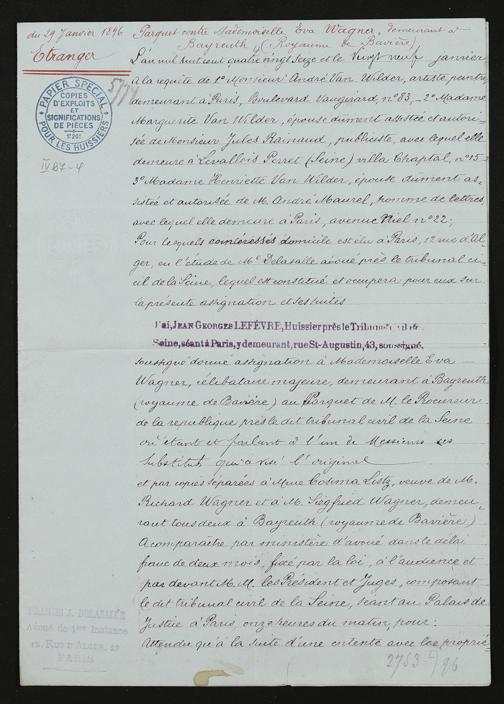 du 29 Janvier 1896 Parquet contre Mademoiselle Eva Wagner, demeurant à
Bayreuth (Royaume de Bavière)
Etranger
PAPIER SPÉCIAL
COPIES
D'EXPLOITS
ET
SIGNIFICATIONS
DE PIÈCES
POUR LES HUISSIERS
IV B7-4
L'an mil huit cent quatre vingt seize et le Vingt neuf janvier
à la requête de 1° Monsieur André Van Wilder, artiste peintre
demeurant à Paris, Boulevard Vaugirard, n° 83, _ 2° Madame
Marguerite Van Wilder, épouse dûment assistée et autori-
sée de Monsieur Jules Rainaud, publiciste, avec lequel elle
demeure à Levallois Perret (Seine) villa Chaptal, n° 15
3° Madame Henriette Van Wilder, épouse dûment as-
sistée et autorisée de M. André Maurel, homme de lettres,
avec lequel elle demeure à Paris, avenue Niel n° 22;
Pour lesquels cointéressés domicile est élu à Paris, 12 rue d'Al-
ger, en l'étude de Me Delasalle avoué près le tribunal ci-
vil de la Seine, lequel est constitué et occupera pour eux sur
la présente assignation et ses suites
J'ai, JEAN GEORGES LEFÈVRE, Huissier près le Tribunal civil de
Seine, séant à Paris, y demeurant, rue St-Augustin, 43, soussigné,
soussigné donné assignation à Mademoiselle Eva
Wagner, célibataire majeure, demeurant à Bayreuth
(royaume de Bavière) au Parquet de M. le Procureur
de la république près le dit tribunal civil de la Seine
où étant et parlant à l'un de Messieurs ses
substituts qui a visé l'original
et par copies séparées à Mme Cosima Listz, veuve de M.
Richard Wagner et à M. Siegfried Wagner, demeu-
rant tous deux à Bayreuth (royaume de Bavière)
A comparaître par ministère d'avoué dans le délai
franc de deux mois, fixé par la loi, à l'audience et
par devant M.M. les Président et Juges, composant
le dit tribunal civil de la Seine, séant au Palais de
Justice à Paris, onze heures du matin, pour:
Attendu qu'à la suite d'une entente avec les proprié-
DELASALLE
Avoué de 1ère Instance
12, RUE D'ALGER, 12
PARIS
2753 96